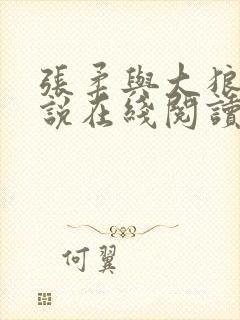 張柔與大狼
說在綫閱讀
何翼